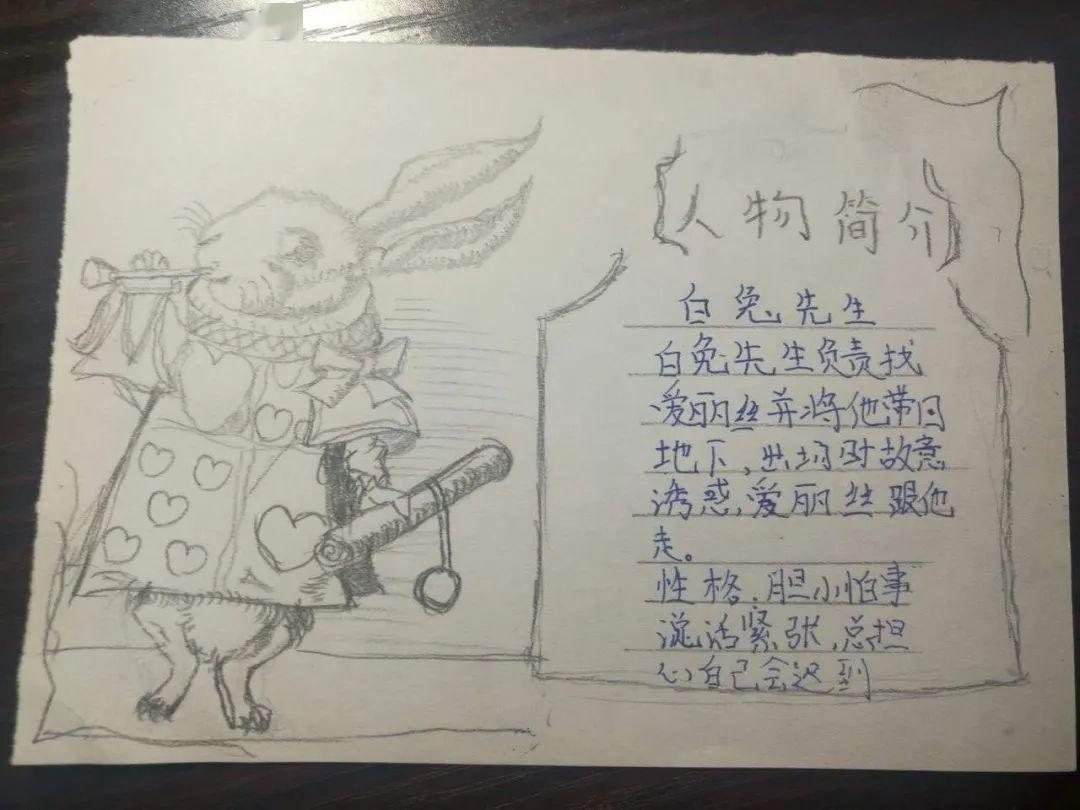 人物简介
白兔先生
白兔先生负责找
爱丽丝并将他带回
地下,出场时故意
诱惑,爱丽丝跟他
走。
性格.胆小怕事
说话紧张,总担
心自己会迟到